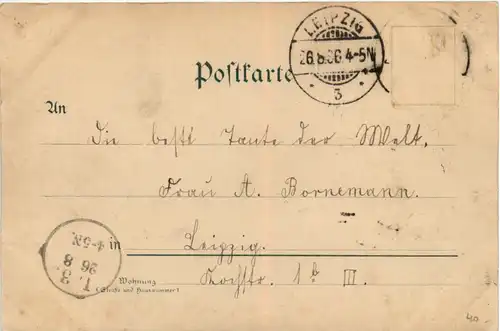 LEIPZIG
26.8.96 4-5N
* 3 *
Postkarte
An
Die beste Tante der Welt.
Frau A. Bornemann.
in Leipzig.
Wohnung
(Straße und Hausnummer)
Kochstr. 1b III.
L. 3.
26 8
4-5N.
40